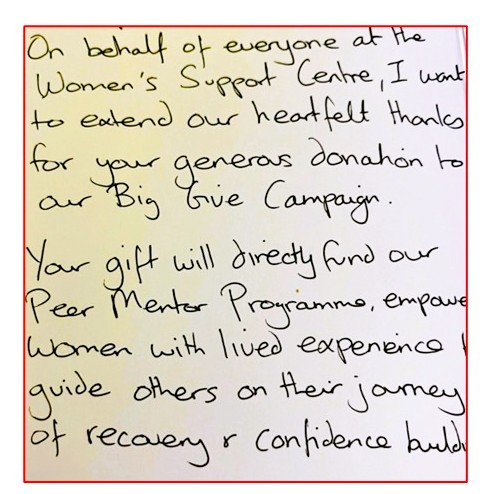 On behalf of everyone at the
Women's Support Centre, I want
to extend our heartfelt thanks
for your generous donation to
our Big Give Campaign.
Your gift will directly fund our
Peer Mentor Programme, empowe
women with lived experience
guide others on their journey
of recovery & confidence buildi